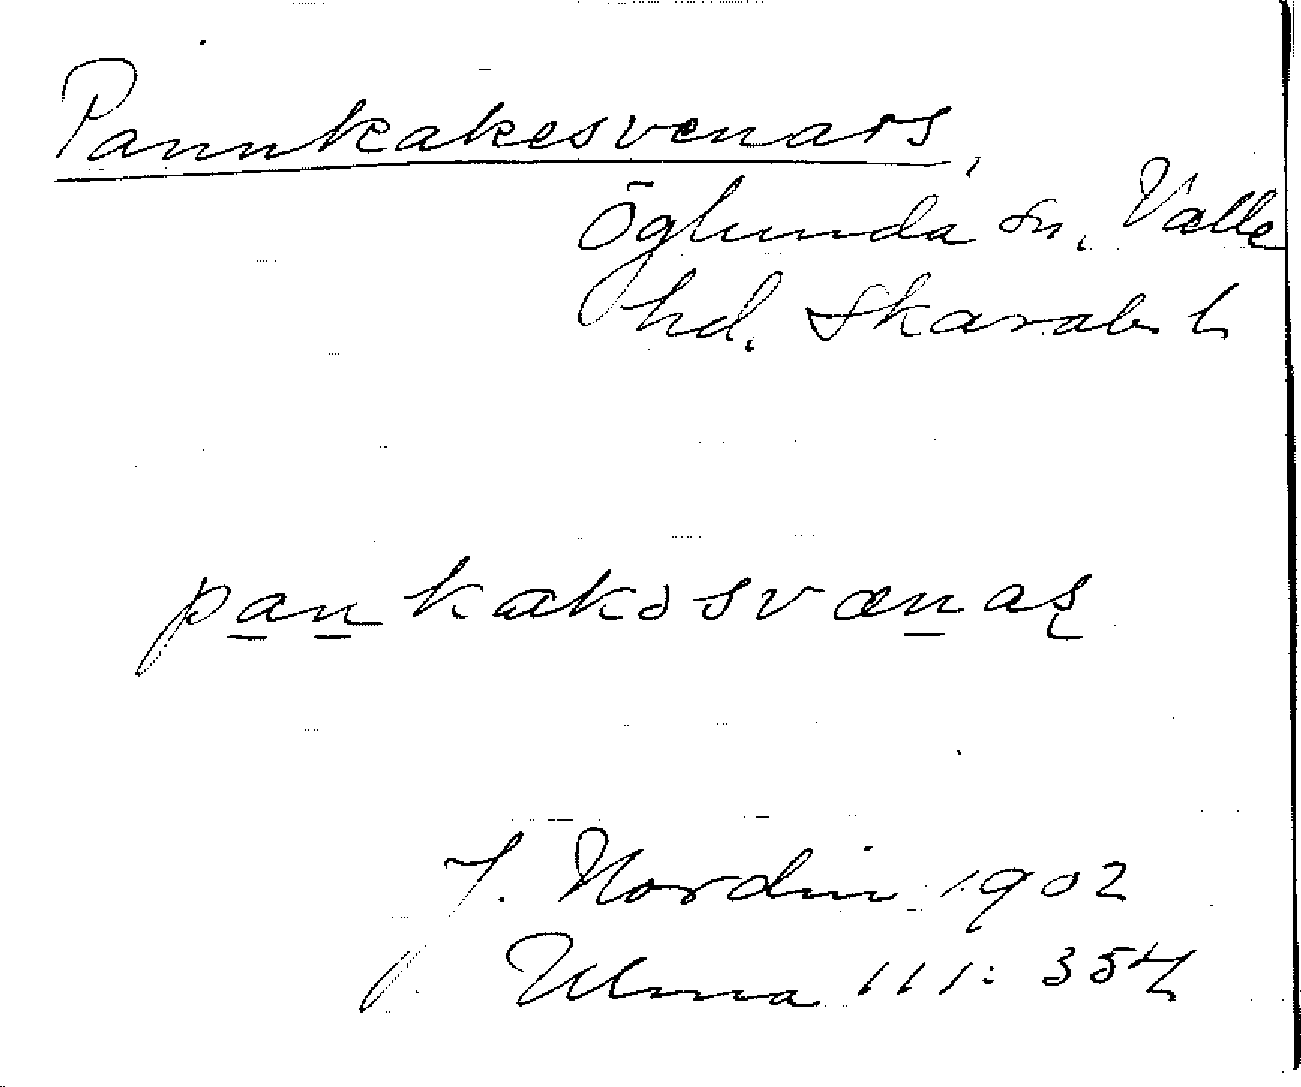 Pannkakesvenars,
Öglunda sn, Valle
hd. Skarab. l
pankakəsvænaș
J. Nordin 1902
Ulma 111: 354